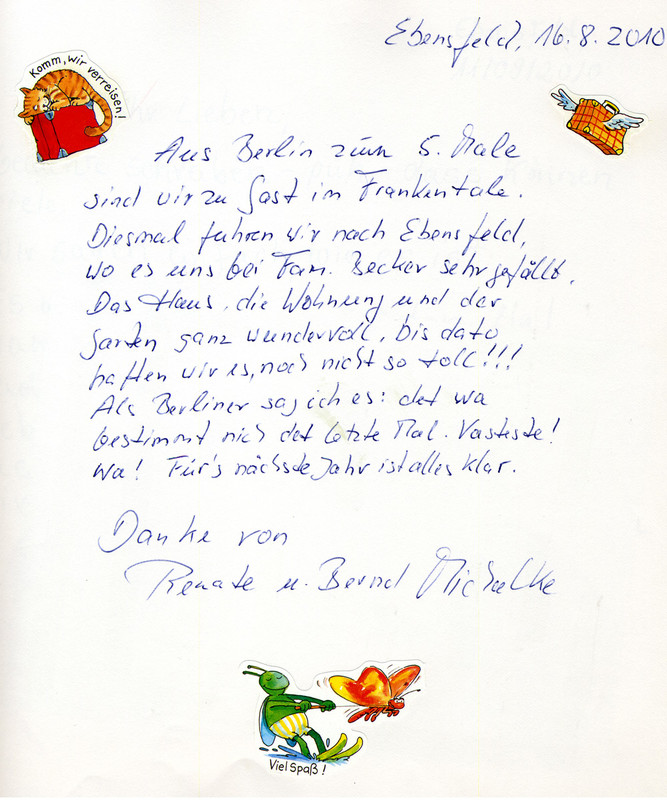 Ebensfeld, 16.8.2010
Komm, wir verreisen!
Aus Berlin zum 5. Male
sind wir zu Gast im Frankentale.
Diesmal fuhren wir nach Ebensfeld,
wo es uns bei Fam. Becker sehr gefällt.
Das Haus, die Wohnung und der
Garten ganz wundervoll, bis dato
hatten wir es, noch nicht so toll!!!
Als Berliner sag ich es: det wa
bestimmt nich det letzte Mal. Vasteste!
Wa! Für's nächste Jahr ist alles klar.
Danke von
Renate u. Bernd Michalke
Viel Spaß!